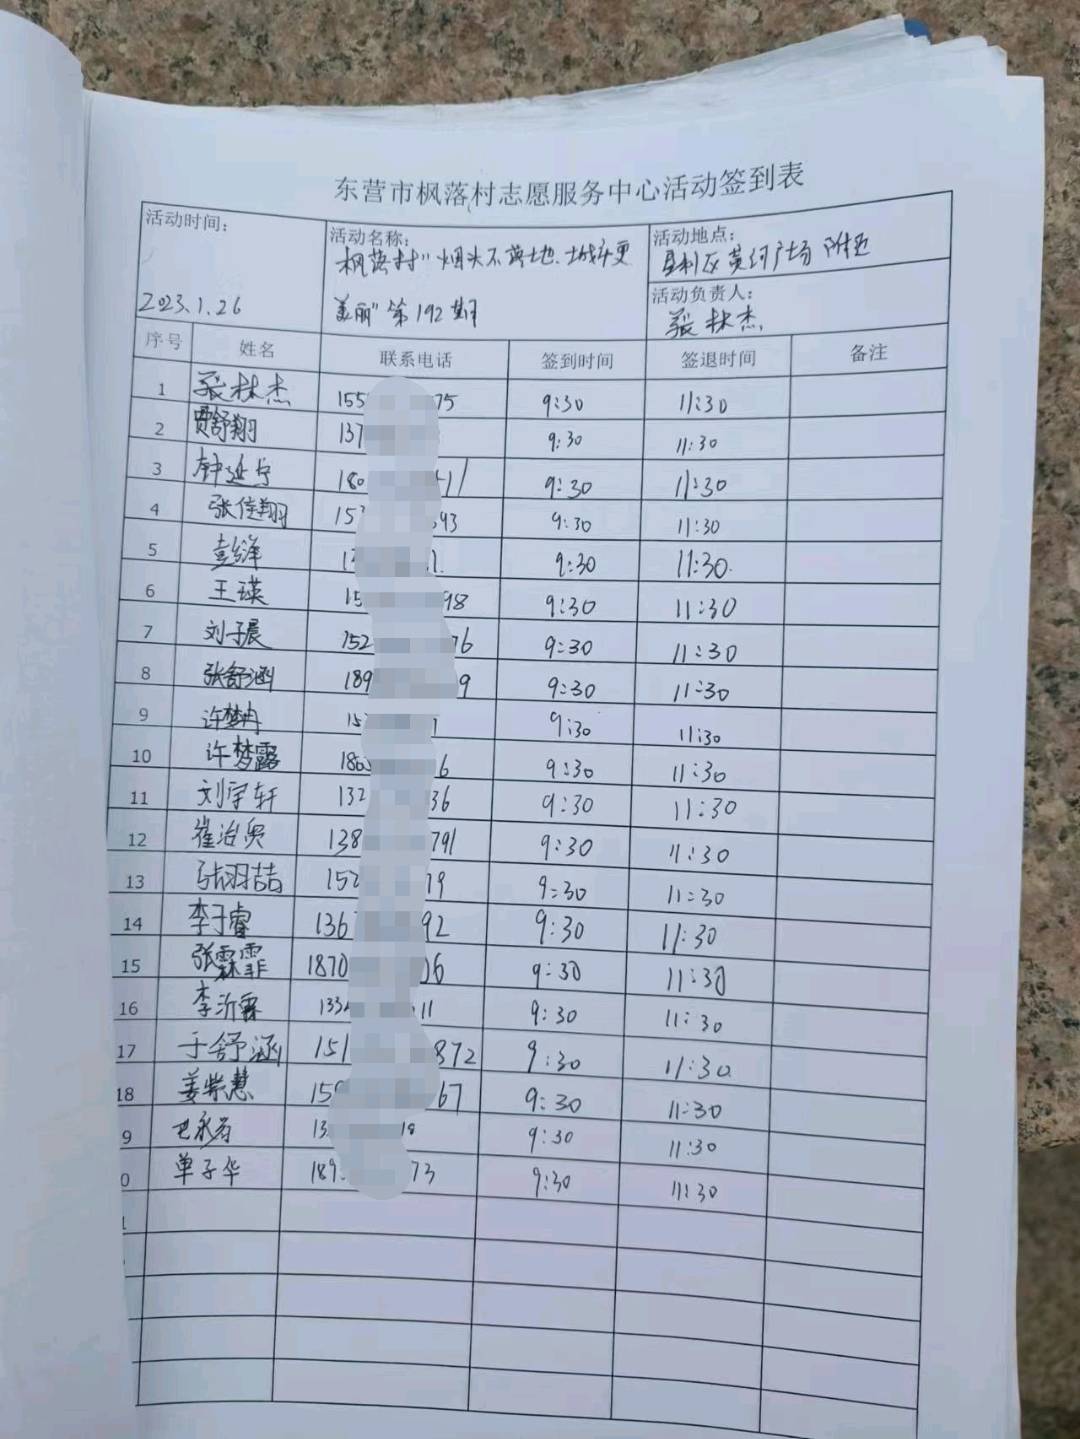 东营市枫落村志愿服务中心活动签到表
活动时间: 2023.1.26
活动名称: 枫落村"烟头不落地、城市更
美丽"第192期
活动地点: 垦利区黄河广场附近
活动负责人: 张林杰
序号 姓名 联系电话 签到时间 签退时间 备注
1 张林杰 155 75 9:30 11:30
2 贾舒翔 137 9:30 11:30
3 钟延宁 180 41 9:30 11:30
4 张佳翔 153 593 9:30 11:30
5 彭泽 1 1. 9:30 11:30.
6 王瑛 15 98 9:30 11:30
7 刘子晨 152 76 9:30 11:30
8 张舒涵 189 9 9:30 11:30
9 许梦冉 15 9:30 11:30
10 许梦露 180 6 9:30 11:30
11 刘宇轩 132 36 9:30 11:30
12 崔治 138 791 9:30 11:30
13 张羽喆 152 79 9:30 11:30
14 李子睿 136 92 9:30 11:30
15 张霖菲 1870 06 9:30 11:30
16 李沂霖 133 11 9:30 11:30
17 于舒涵 151 872 9:30 11:30
18 姜紫慧 159 67 9:30 11:30
9 13 18 9:30 11:30
0 单子华 189 73 9:30 11:30